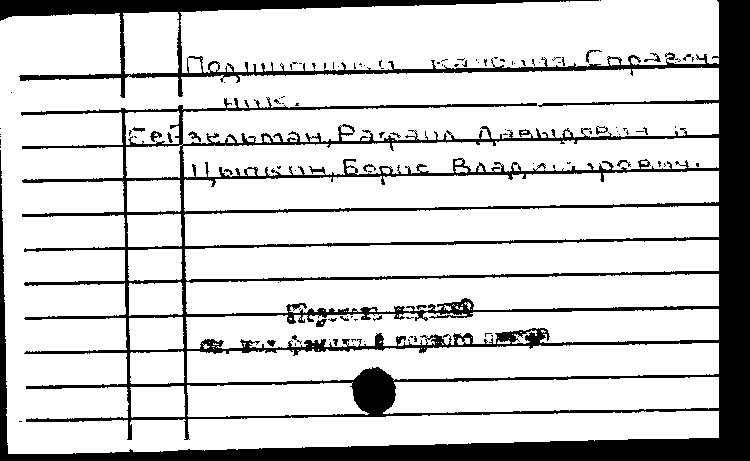 Подшипники качения. Справоч-
ник.
Бейзельман, Рафаил Давыдович и
Цыпкин, Борис Владимирович.
Перечень изданий
см. под фамилией первого автора